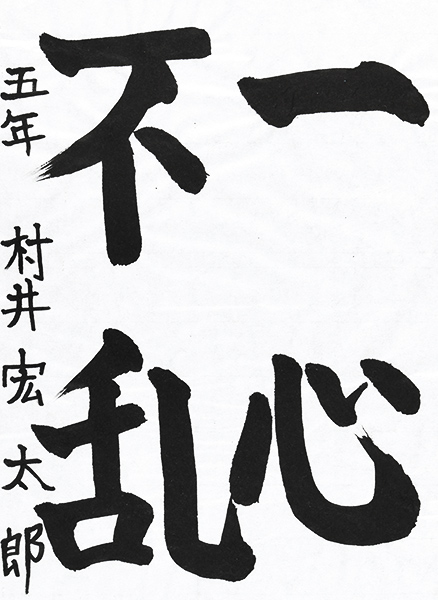 一心
不乱
五年 村井宏太郎